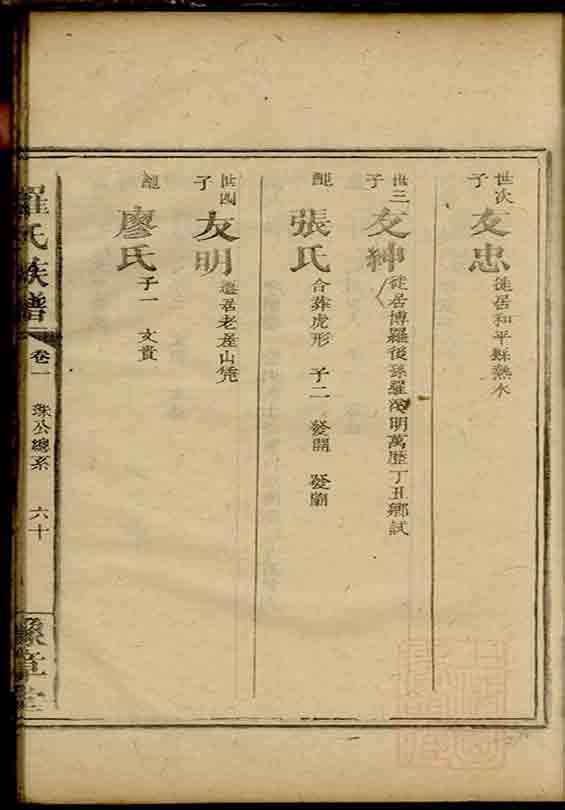 世次子 友忠 徙居和平縣熱水
世三子 友紳 徙居博羅後孫羅 明萬歷丁丑鄉試
配 張氏 合葬虎形 子二 發開 發廟
世四子 友明 遷居老產山凭
配 廖氏 子一 文貴
羅氏族譜 卷一 珠公總系 六十 豫章堂